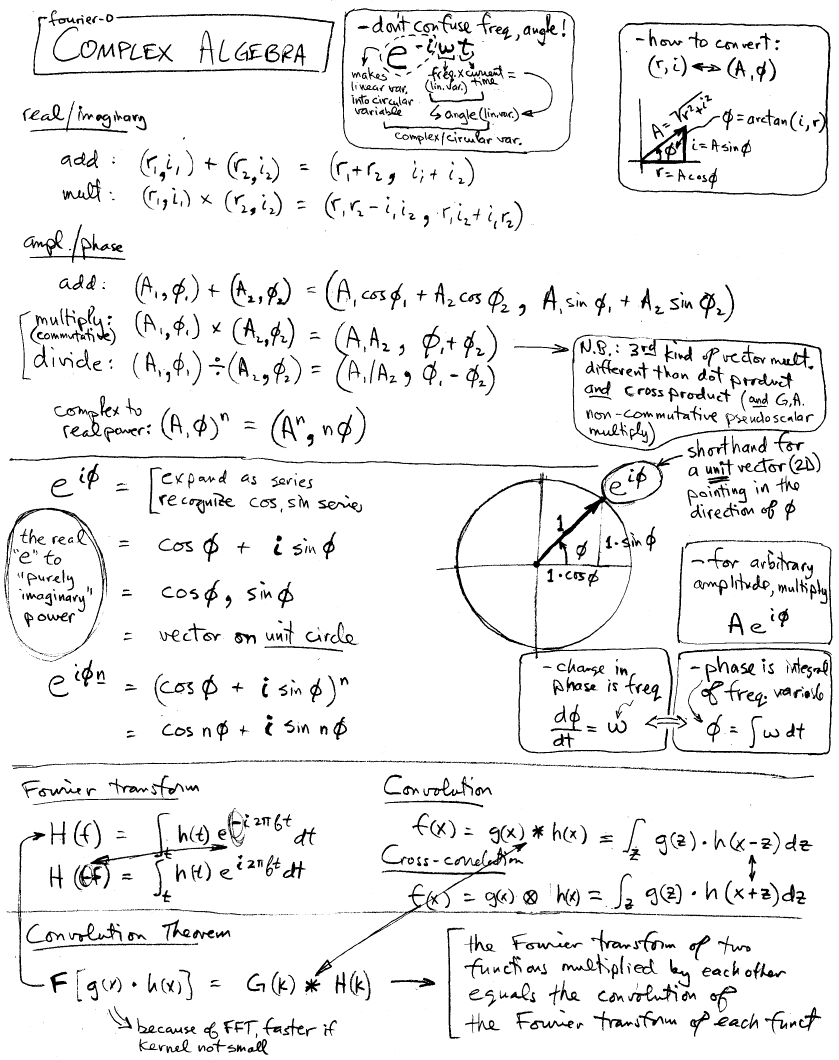 fourier-0
COMPLEX ALGEBRA
- don't confuse freq, angle!
e^-iωt
makes linear var. into circular variable
freq. × current = (lin. var.) time
↳ angle (lin. var.)
complex/circular var.
- how to convert:
(r, i) ↔ (A, ϕ)
A = √r²+i²
ϕ = arctan(i, r)
ϕ
i = A sin ϕ
r = A cos ϕ
real/imaginary
add: (r₁, i₁) + (r₂, i₂) = (r₁ + r₂, i₁ + i₂)
mult: (r₁, i₁) × (r₂, i₂) = (r₁r₂ - i₁i₂, r₁i₂ + i₁r₂)
ampl./phase
add: (A₁, ϕ₁) + (A₂, ϕ₂) = (A₁ cos ϕ₁ + A₂ cos ϕ₂, A₁ sin ϕ₁ + A₂ sin ϕ₂)
multiply: (commutative) (A₁, ϕ₁) × (A₂, ϕ₂) = (A₁A₂, ϕ₁ + ϕ₂)
divide: (A₁, ϕ₁) ÷ (A₂, ϕ₂) = (A₁/A₂, ϕ₁ - ϕ₂)
N.B.: 3rd kind of vector mult.
different than dot product
and cross product (and G.A.
non-commutative pseudoscalar
multiply)
complex to
real power: (A, ϕ)ⁿ = (Aⁿ, nϕ)
e^iϕ = [expand as series
recognize cos, sin series
the real
"e" to
"purely
imaginary"
power
= cos ϕ + i sin ϕ
= cos ϕ, sin ϕ
= vector on unit circle
e^iϕn = (cos ϕ + i sin ϕ)ⁿ
= cos nϕ + i sin nϕ
e^iϕ
1
ϕ
1·sin ϕ
1·cos ϕ
shorthand for
a unit vector (2D)
pointing in the
direction of ϕ
- for arbitrary
amplitude, multiply
A e^iϕ
- change in
phase is freq
dϕ/dt = ω
- phase is integral
of freq. variable
ϕ = ∫ω dt
Fourier transform
H(f) = ∫t h(t) e^-i2πft dt
H(-f) = ∫t h(t) e^i2πft dt
Convolution
f(x) = g(x) * h(x) = ∫z g(z) · h(x-z) dz
Cross-correlation
f(x) = g(x) ⊗ h(x) = ∫z g(z) · h(x+z) dz
Convolution Theorem
F[g(x) · h(x)] = G(k) * H(k)
because of FFT, faster if
kernel not small
the Fourier transform of two
functions multiplied by each other
equals the convolution of
the Fourier transform of each funct